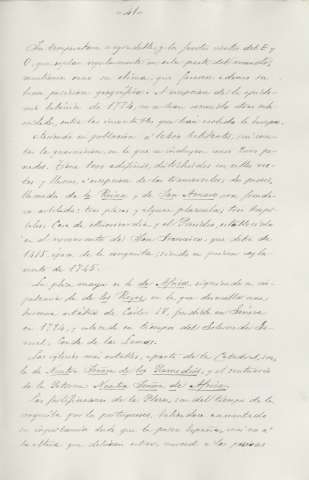 - 41 -
Su temperatura agradable, y los fuertes vientos del E y
O, que soplan regularmente en esta parte del mundo,
mantienen sano su clima, que favorece además su
buena posición geográfica. A excepción de la epide-
mia de 1774, no se han conocido
entre las que han
su población á habitantes, sin con-
tar la guarnición, en la que se incluyen unos tres pe-
nados. Tiene 1000 edificios, distribuidos en calles rec-
tas y llanas, á excepción de las de paseos,
llamados de la Reina y de San Amaro con fron-
doso arbolado; tres plazas y algunas plazuelas; tres hospi-
tales, Casa de misericordia, y el Presidio establecido
en el ex-convento de San Francisco, que data de
1415, época de la conquista, siendo su primer regla-
mento de 1745.
La plaza mayor es la de Africa, siguiendo en im-
portancia la de los Reyes en la que descuella una
hermosa estatua de Carlos IV, fundida en Génova
en 1794, y colocada en tiempos del Gober-
nador Conde de las Lomas.
Las iglesias más notables, aparte de la Catedral, son
la de Nuestra Señora de los Remedios, y el santuario
de la Patrona Nuestra Señora de Africa.
Las fortificaciones de la Plaza, son del tiempo de la
conquista por los portugueses, habiendo aumentado
en importancia desde que la posee España, unido á
la altura que debieran estar, merced á los